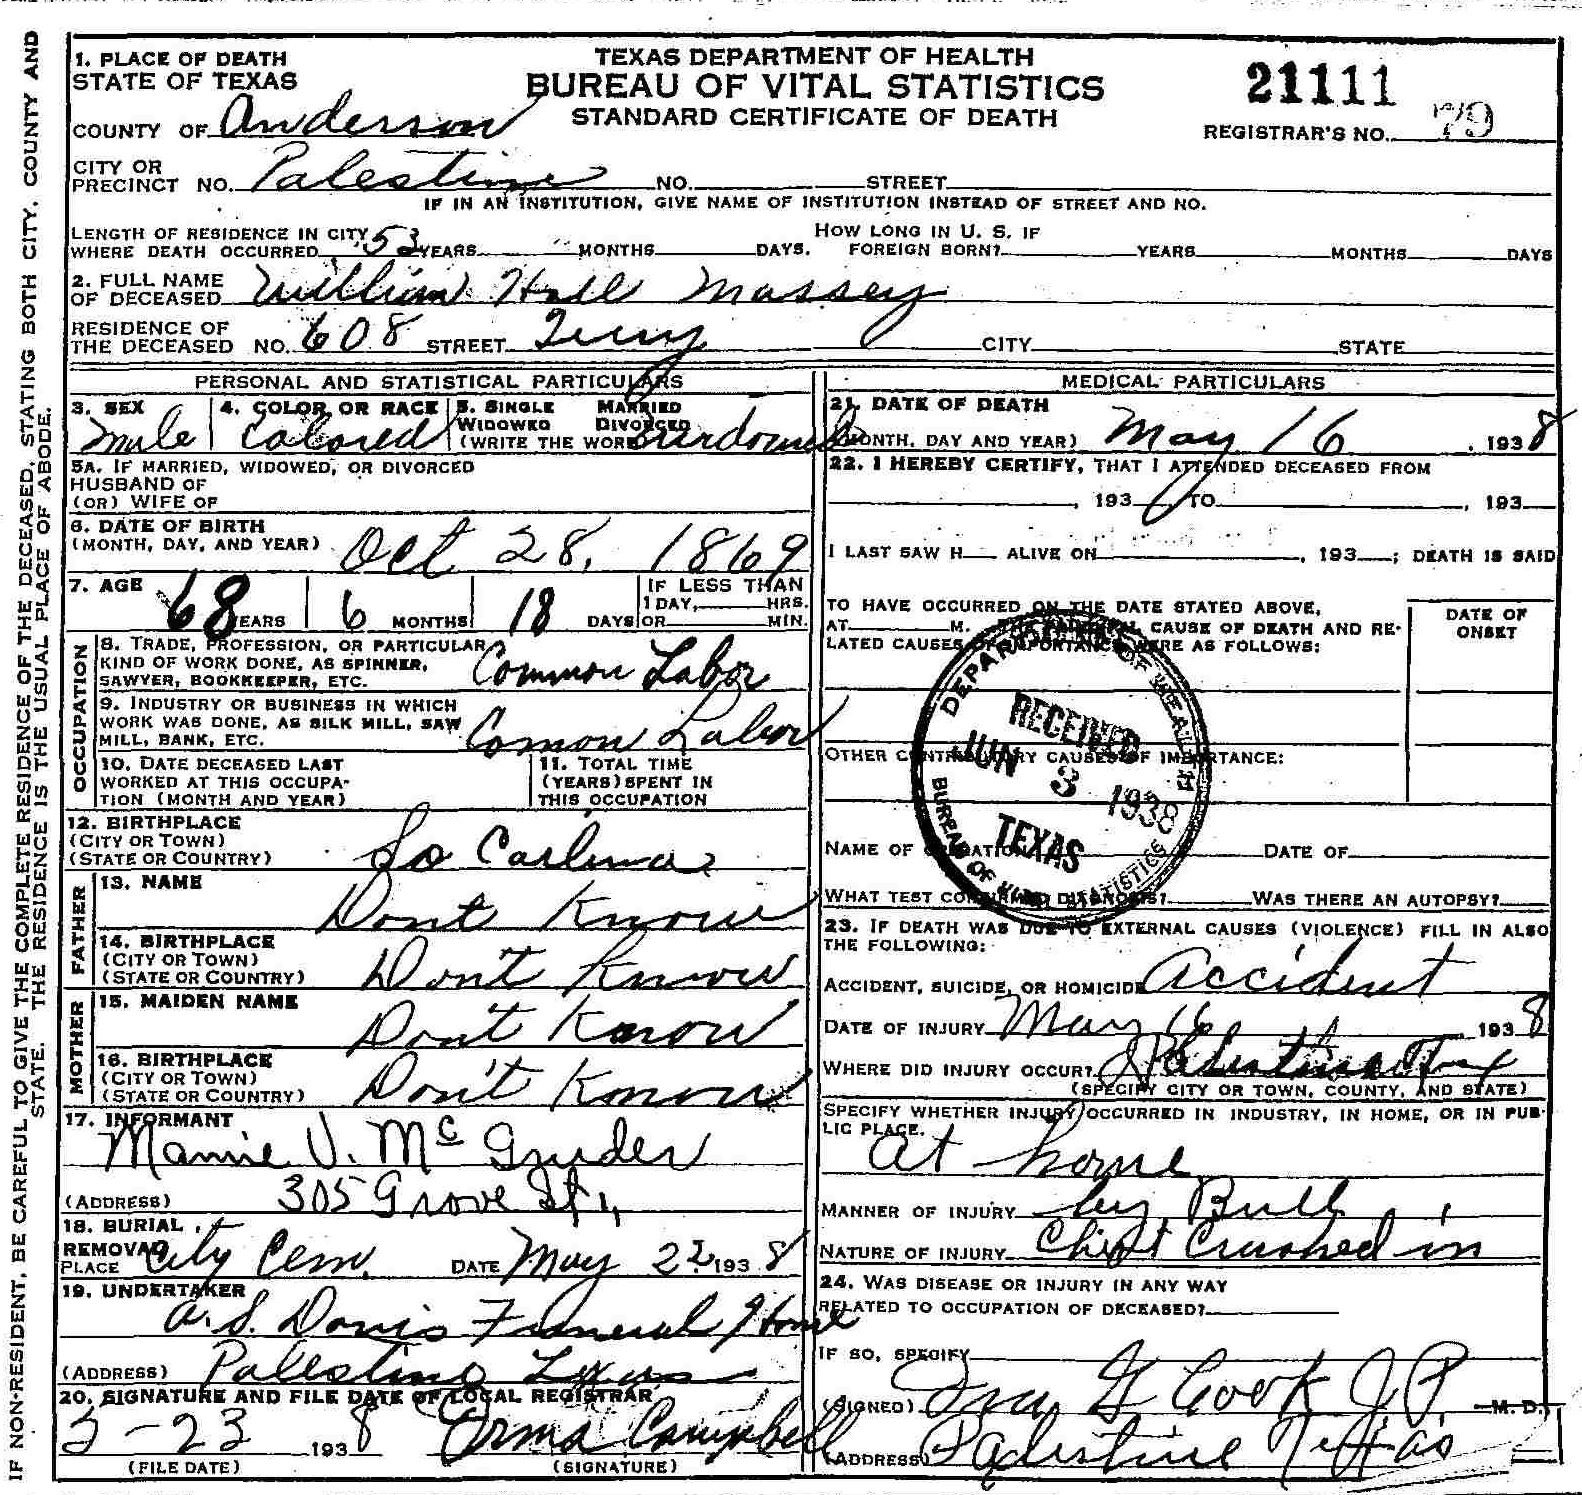 TEXAS DEPARTMENT OF HEALTH
BUREAU OF VITAL STATISTICS
STANDARD CERTIFICATE OF DEATH
21111
REGISTRAR'S NO. 79
1. PLACE OF DEATH
STATE OF TEXAS
COUNTY OF Anderson
CITY OR
PRECINCT NO. Palestine NO. STREET
IF IN AN INSTITUTION, GIVE NAME OF INSTITUTION INSTEAD OF STREET AND NO.
LENGTH OF RESIDENCE IN CITY HOW LONG IN U. S. IF
WHERE DEATH OCCURRED 53 YEARS MONTHS DAYS. FOREIGN BORN? YEARS MONTHS DAYS
2. FULL NAME
OF DECEASED William Hall Massey
RESIDENCE OF
THE DECEASED NO. 608 STREET CITY STATE
PERSONAL AND STATISTICAL PARTICULARS
3. SEX 4. COLOR OR RACE 5. SINGLE MARRIED
WIDOWED DIVORCED
male Colored (WRITE THE WORD
5A. IF MARRIED, WIDOWED, OR DIVORCED
HUSBAND OF
(OR) WIFE OF
6. DATE OF BIRTH
(MONTH, DAY, AND YEAR) Oct 28, 1869
7. AGE IF LESS THAN
68 YEARS 6 MONTHS 18 DAYS 1 DAY, HRS.
OR MIN.
OCCUPATION
8. TRADE, PROFESSION, OR PARTICULAR
KIND OF WORK DONE, AS SPINNER,
SAWYER, BOOKKEEPER, ETC. Common Labor
9. INDUSTRY OR BUSINESS IN WHICH
WORK WAS DONE, AS SILK MILL, SAW
MILL, BANK, ETC. Comon Labor
10. DATE DECEASED LAST
WORKED AT THIS OCCUPA-
TION (MONTH AND YEAR)
11. TOTAL TIME
(YEARS) SPENT IN
THIS OCCUPATION
12. BIRTHPLACE
(CITY OR TOWN)
(STATE OR COUNTRY) So Carlina
FATHER
13. NAME Dont Know
14. BIRTHPLACE
(CITY OR TOWN)
(STATE OR COUNTRY) Don't Know
MOTHER
15. MAIDEN NAME Don't Know
16. BIRTHPLACE
(CITY OR TOWN)
(STATE OR COUNTRY) Don't Know
17. INFORMANT
Mamie V. McGruder
(ADDRESS) 305 Grove St.,
18. BURIAL
REMOVAL
PLACE City Cem. DATE May 22 1938
19. UNDERTAKER
A. S. Davis Funeral Home
(ADDRESS) Palestine Texas
20. SIGNATURE AND FILE DATE OF LOCAL REGISTRAR
5-23 1938 Orma Campbell
(FILE DATE) (SIGNATURE)
MEDICAL PARTICULARS
21. DATE OF DEATH
(MONTH, DAY AND YEAR) May 16, 1938
22. I HEREBY CERTIFY, THAT I ATTENDED DECEASED FROM
, 193 TO , 193
I LAST SAW H ALIVE ON , 193 ; DEATH IS SAID
TO HAVE OCCURRED ON THE DATE STATED ABOVE,
AT M. THE PRINCIPAL CAUSE OF DEATH AND RE-
LATED CAUSES OF IMPORTANCE WERE AS FOLLOWS:
DATE OF
ONSET
DEPARTMENT OF HEALTH
RECEIVED
JUN 3 1938
TEXAS
BUREAU OF VITAL STATISTICS
OTHER CONTRIBUTORY CAUSES OF IMPORTANCE:
NAME OF OPERATION DATE OF
WHAT TEST CONFIRMED DIAGNOSIS? WAS THERE AN AUTOPSY?
23. IF DEATH WAS DUE TO EXTERNAL CAUSES (VIOLENCE) FILL IN ALSO
THE FOLLOWING:
ACCIDENT, SUICIDE, OR HOMICIDE Accident
DATE OF INJURY May 16 1938
WHERE DID INJURY OCCUR? Palestine Tex
(SPECIFY CITY OR TOWN, COUNTY, AND STATE)
SPECIFY WHETHER INJURY OCCURRED IN INDUSTRY, IN HOME, OR IN PUB-
LIC PLACE.
At home
MANNER OF INJURY by Bull
NATURE OF INJURY Chest Crushed in
24. WAS DISEASE OR INJURY IN ANY WAY
RELATED TO OCCUPATION OF DECEASED?
IF SO, SPECIFY
(SIGNED) Cook J P M. D.
(ADDRESS) Palestine Texas
IF NON-RESIDENT, BE CAREFUL TO GIVE THE COMPLETE RESIDENCE OF THE DECEASED, STATING BOTH CITY, COUNTY AND
STATE. THE RESIDENCE IS THE USUAL PLACE OF ABODE.